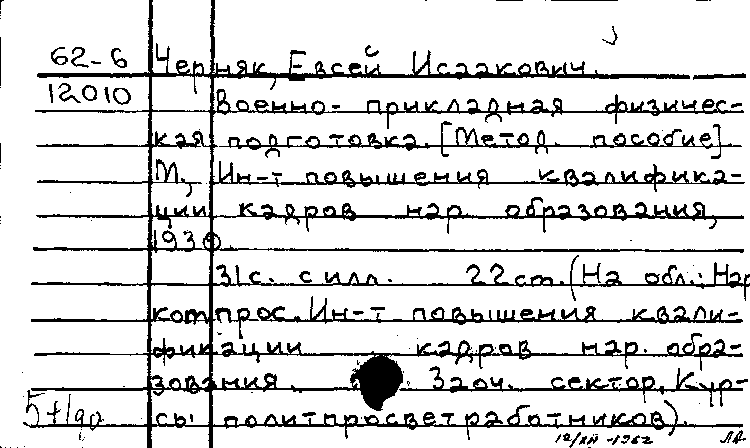 62-6 Черняк, Евсей Исаакович.
12010 Военно-прикладная физичес-
кая подготовка. [Метод. пособие]
М., Ин-т повышения квалифика-
ции кадров нар. образования,
1930.
31с. с илл. 22см. (На обл.: Нар
компрос. Ин-т повышения квали-
фикации кадров нар. обра-
зования. Заоч. сектор. Кур-
сы политпросветработников).
12/XII-1962